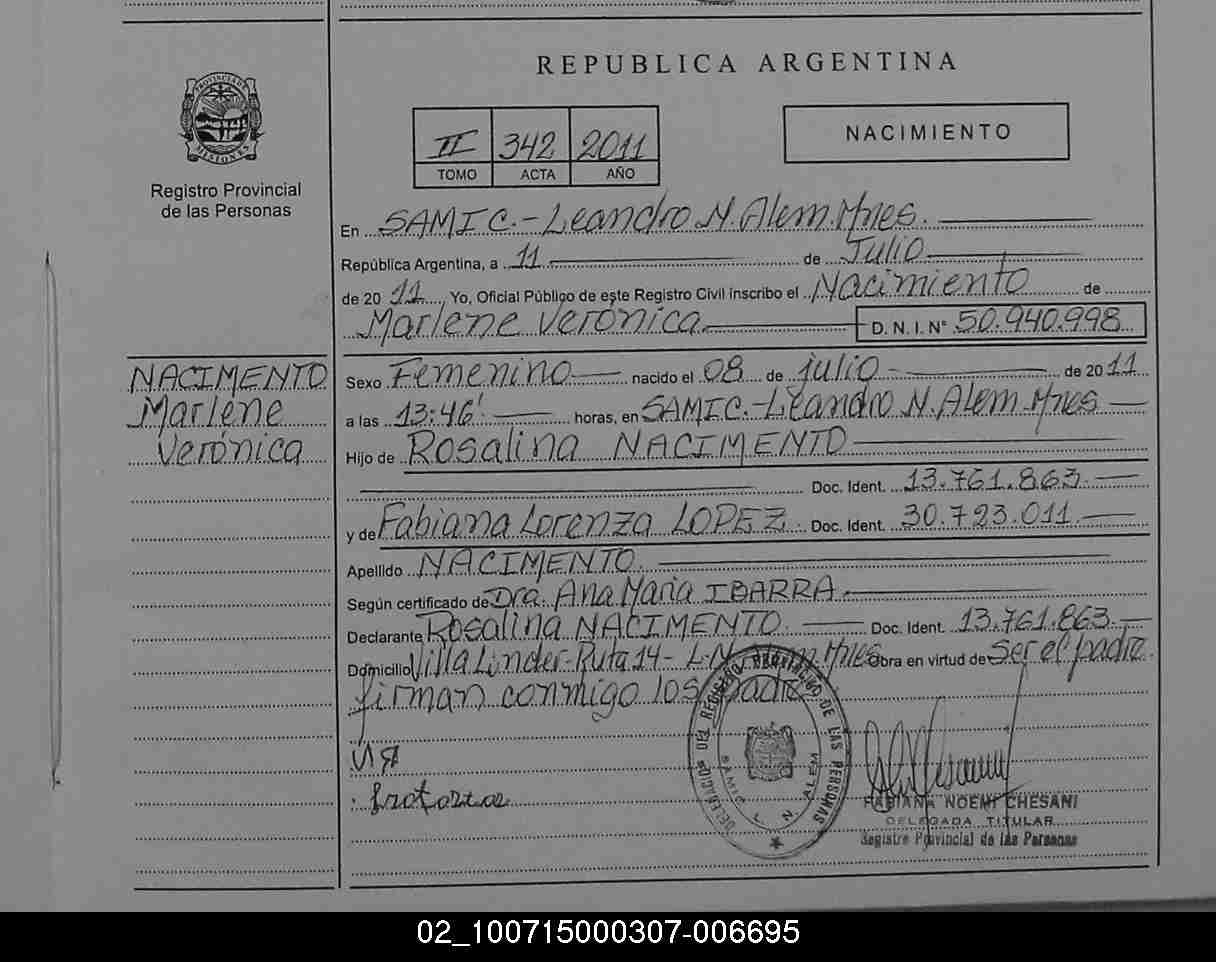 REPUBLICA ARGENTINA
PROVINCIA DE MISIONES
Registro Provincial
de las Personas
II 342 2011
TOMO ACTA AÑO
NACIMIENTO
En SAMIC.- Leandro N. Alem. Mnes.
República Argentina, a 11 de Julio
de 2011, Yo, Oficial Público de este Registro Civil inscribo el Nacimiento de
Marlene Verónica D. N. I. N° 50.940.998
NACIMENTO
Marlene
Verónica
Sexo Femenino nacido el 08 de julio de 2011
a las 13:46' horas, en SAMIC.- Leandro N. Alem. Mnes
Hijo de Rosalina NACIMENTO
Doc. Ident. 13.761.863
y de Fabiana Lorenza LOPEZ Doc. Ident. 30.723.011
Apellido NACIMENTO
Según certificado de Dra. Ana Maria IBARRA
Declarante Rosalina NACIMENTO Doc. Ident. 13.761.863
Domicilio Villa Linder- Ruta 14- L.N. Alem. Mnes Obra en virtud de Ser el padre.
firman conmigo los padre
DELEGACION DEL REGISTRO PROVINCIAL DE LAS PERSONAS
SAMIC L. N. ALEM
FABIANA NOEMI CHESANI
DELEGADA TITULAR
Registro Provincial de las Personas
02_100715000307-006695